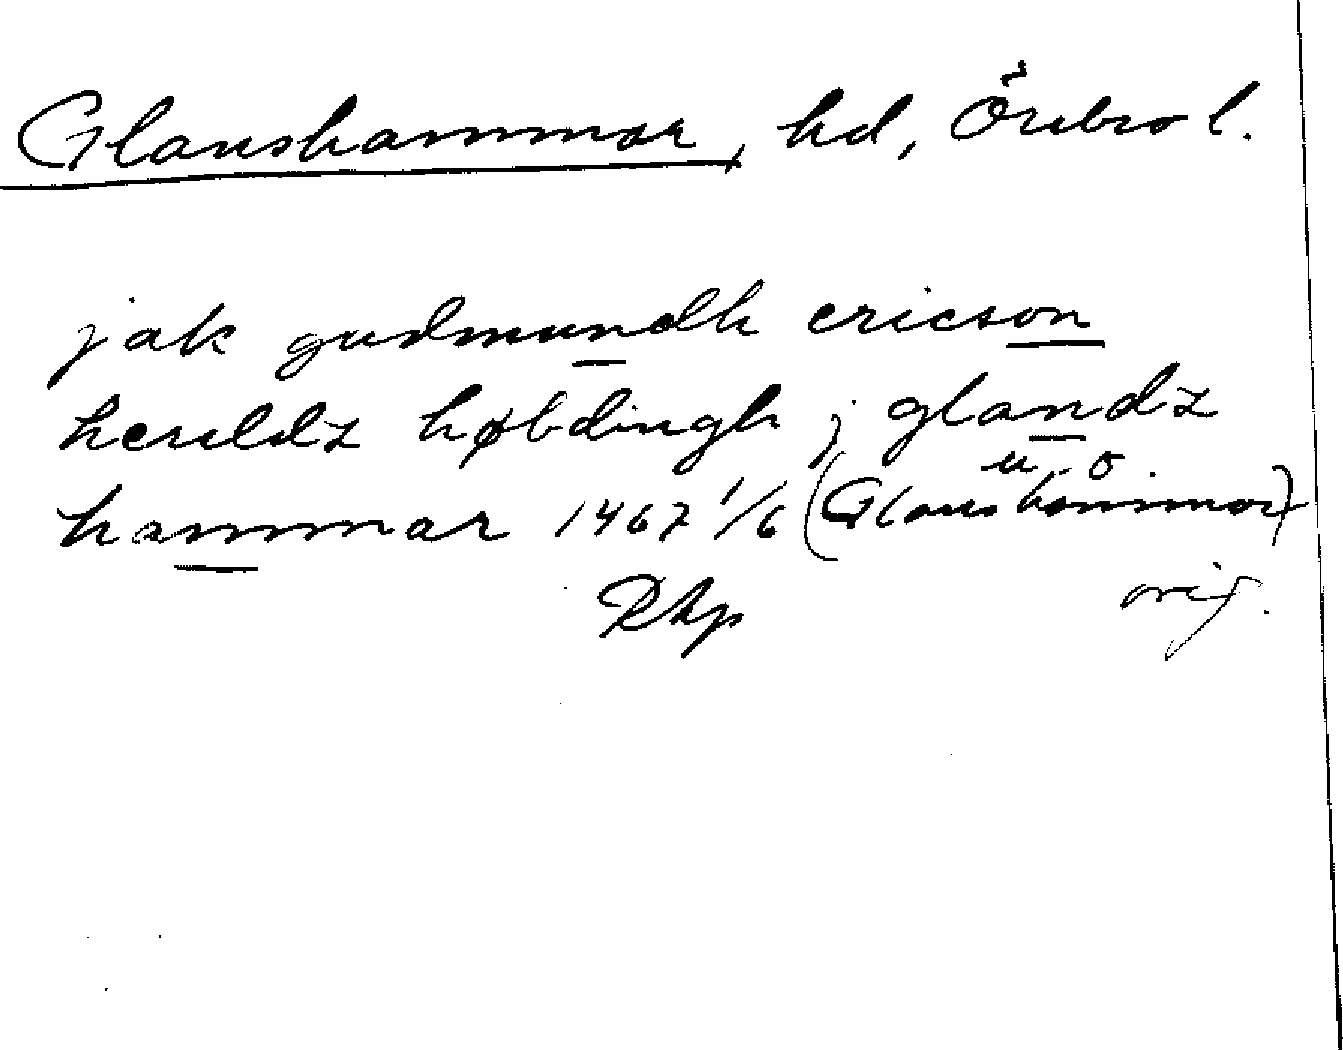 Glanshammar, hd, Örebro l.
jak gudmundh ericson
hereldz høbdingh j glandz
hammar 1467 1/6 (Glanshammar)
u. o.
RAp orig.